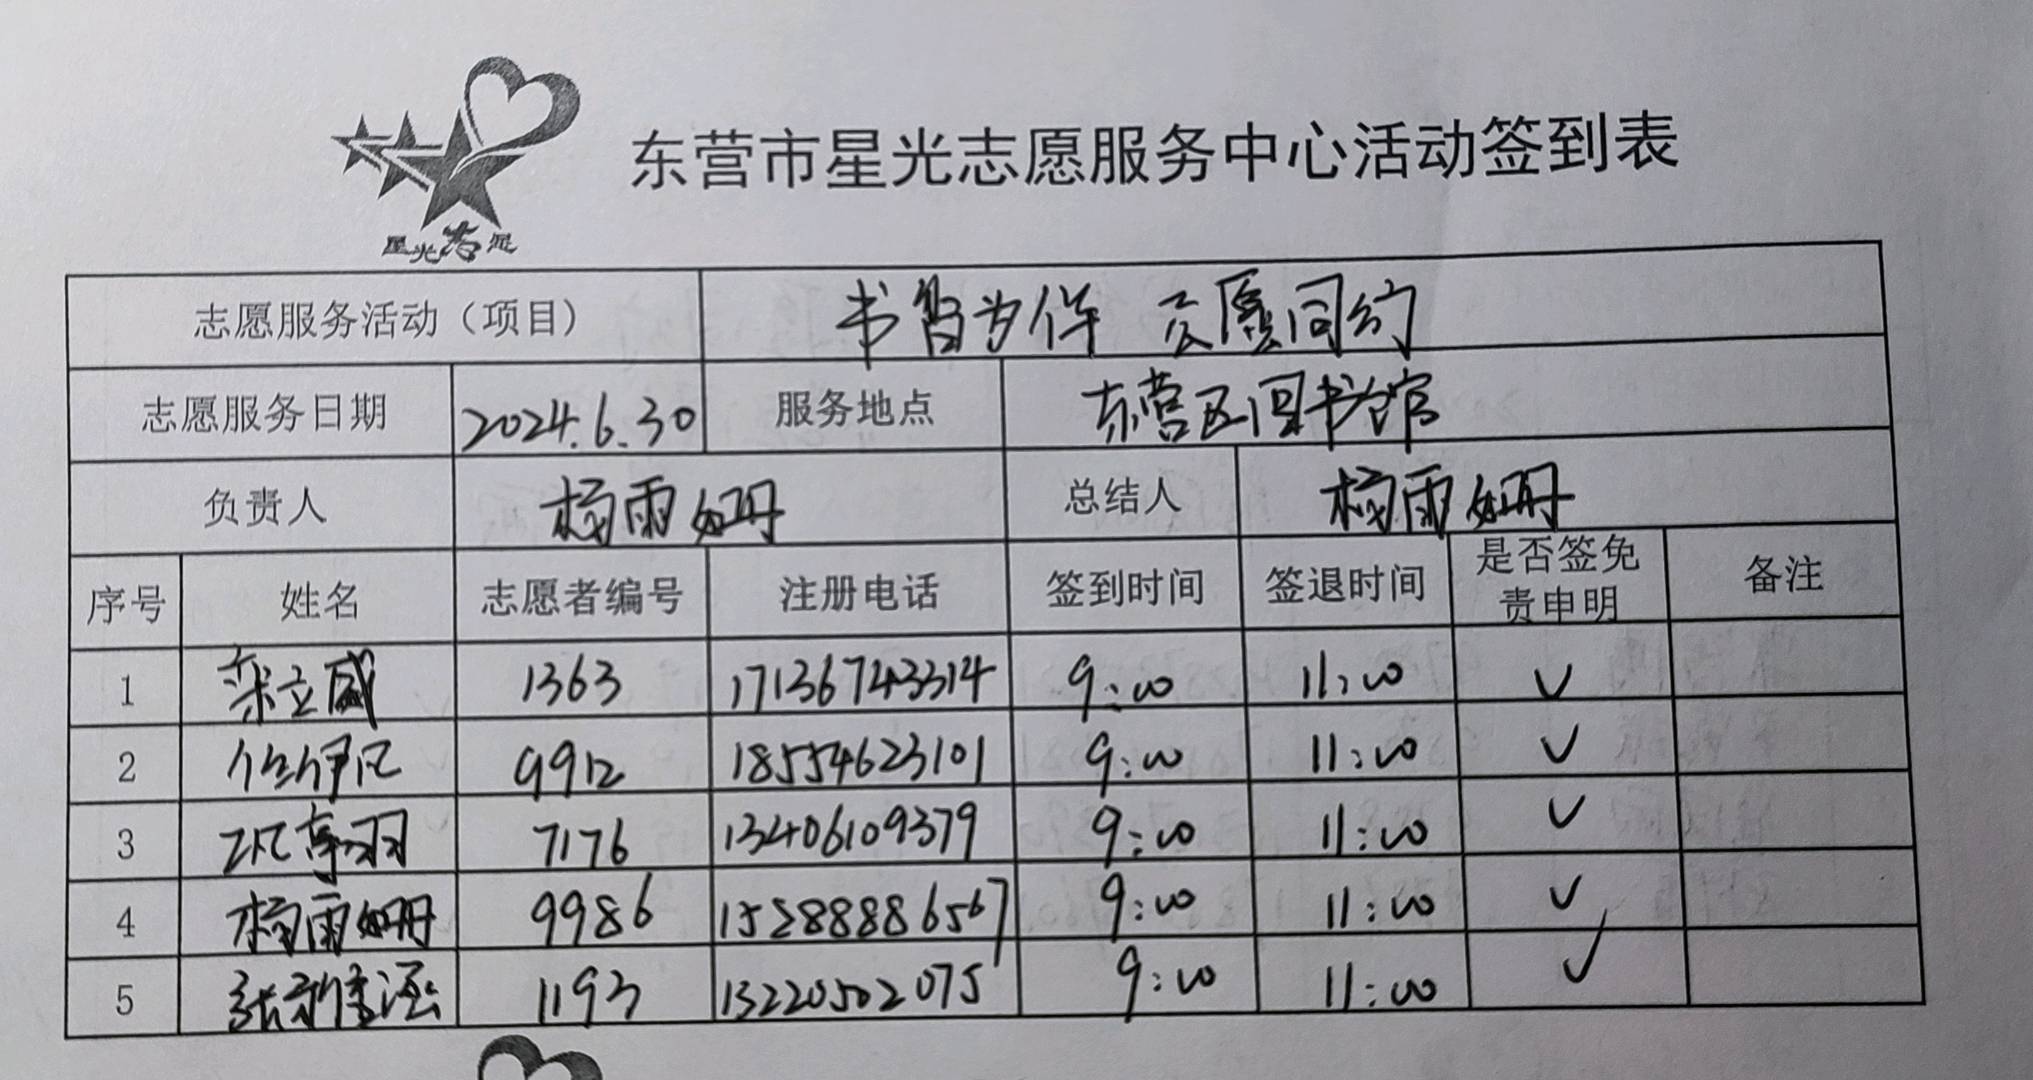 星光志愿
东营市星光志愿服务中心活动签到表
志愿服务活动（项目） 书智为伴 公愿同约
志愿服务日期 2024.6.30 服务地点 东营区图书馆
负责人 杨雨姗 总结人 杨雨姗
序号 姓名 志愿者编号 注册电话 签到时间 签退时间 是否签免责申明 备注
1 栾立威 1363 17136743314 9:00 11:00 ✓
2 伊凡 9912 18554623101 9:00 11:00 ✓
3 羽 7176 13406109379 9:00 11:00 ✓
4 杨雨姗 9986 15288886567 9:00 11:00 ✓
5 张 涵 1193 13220502075 9:00 11:00 ✓